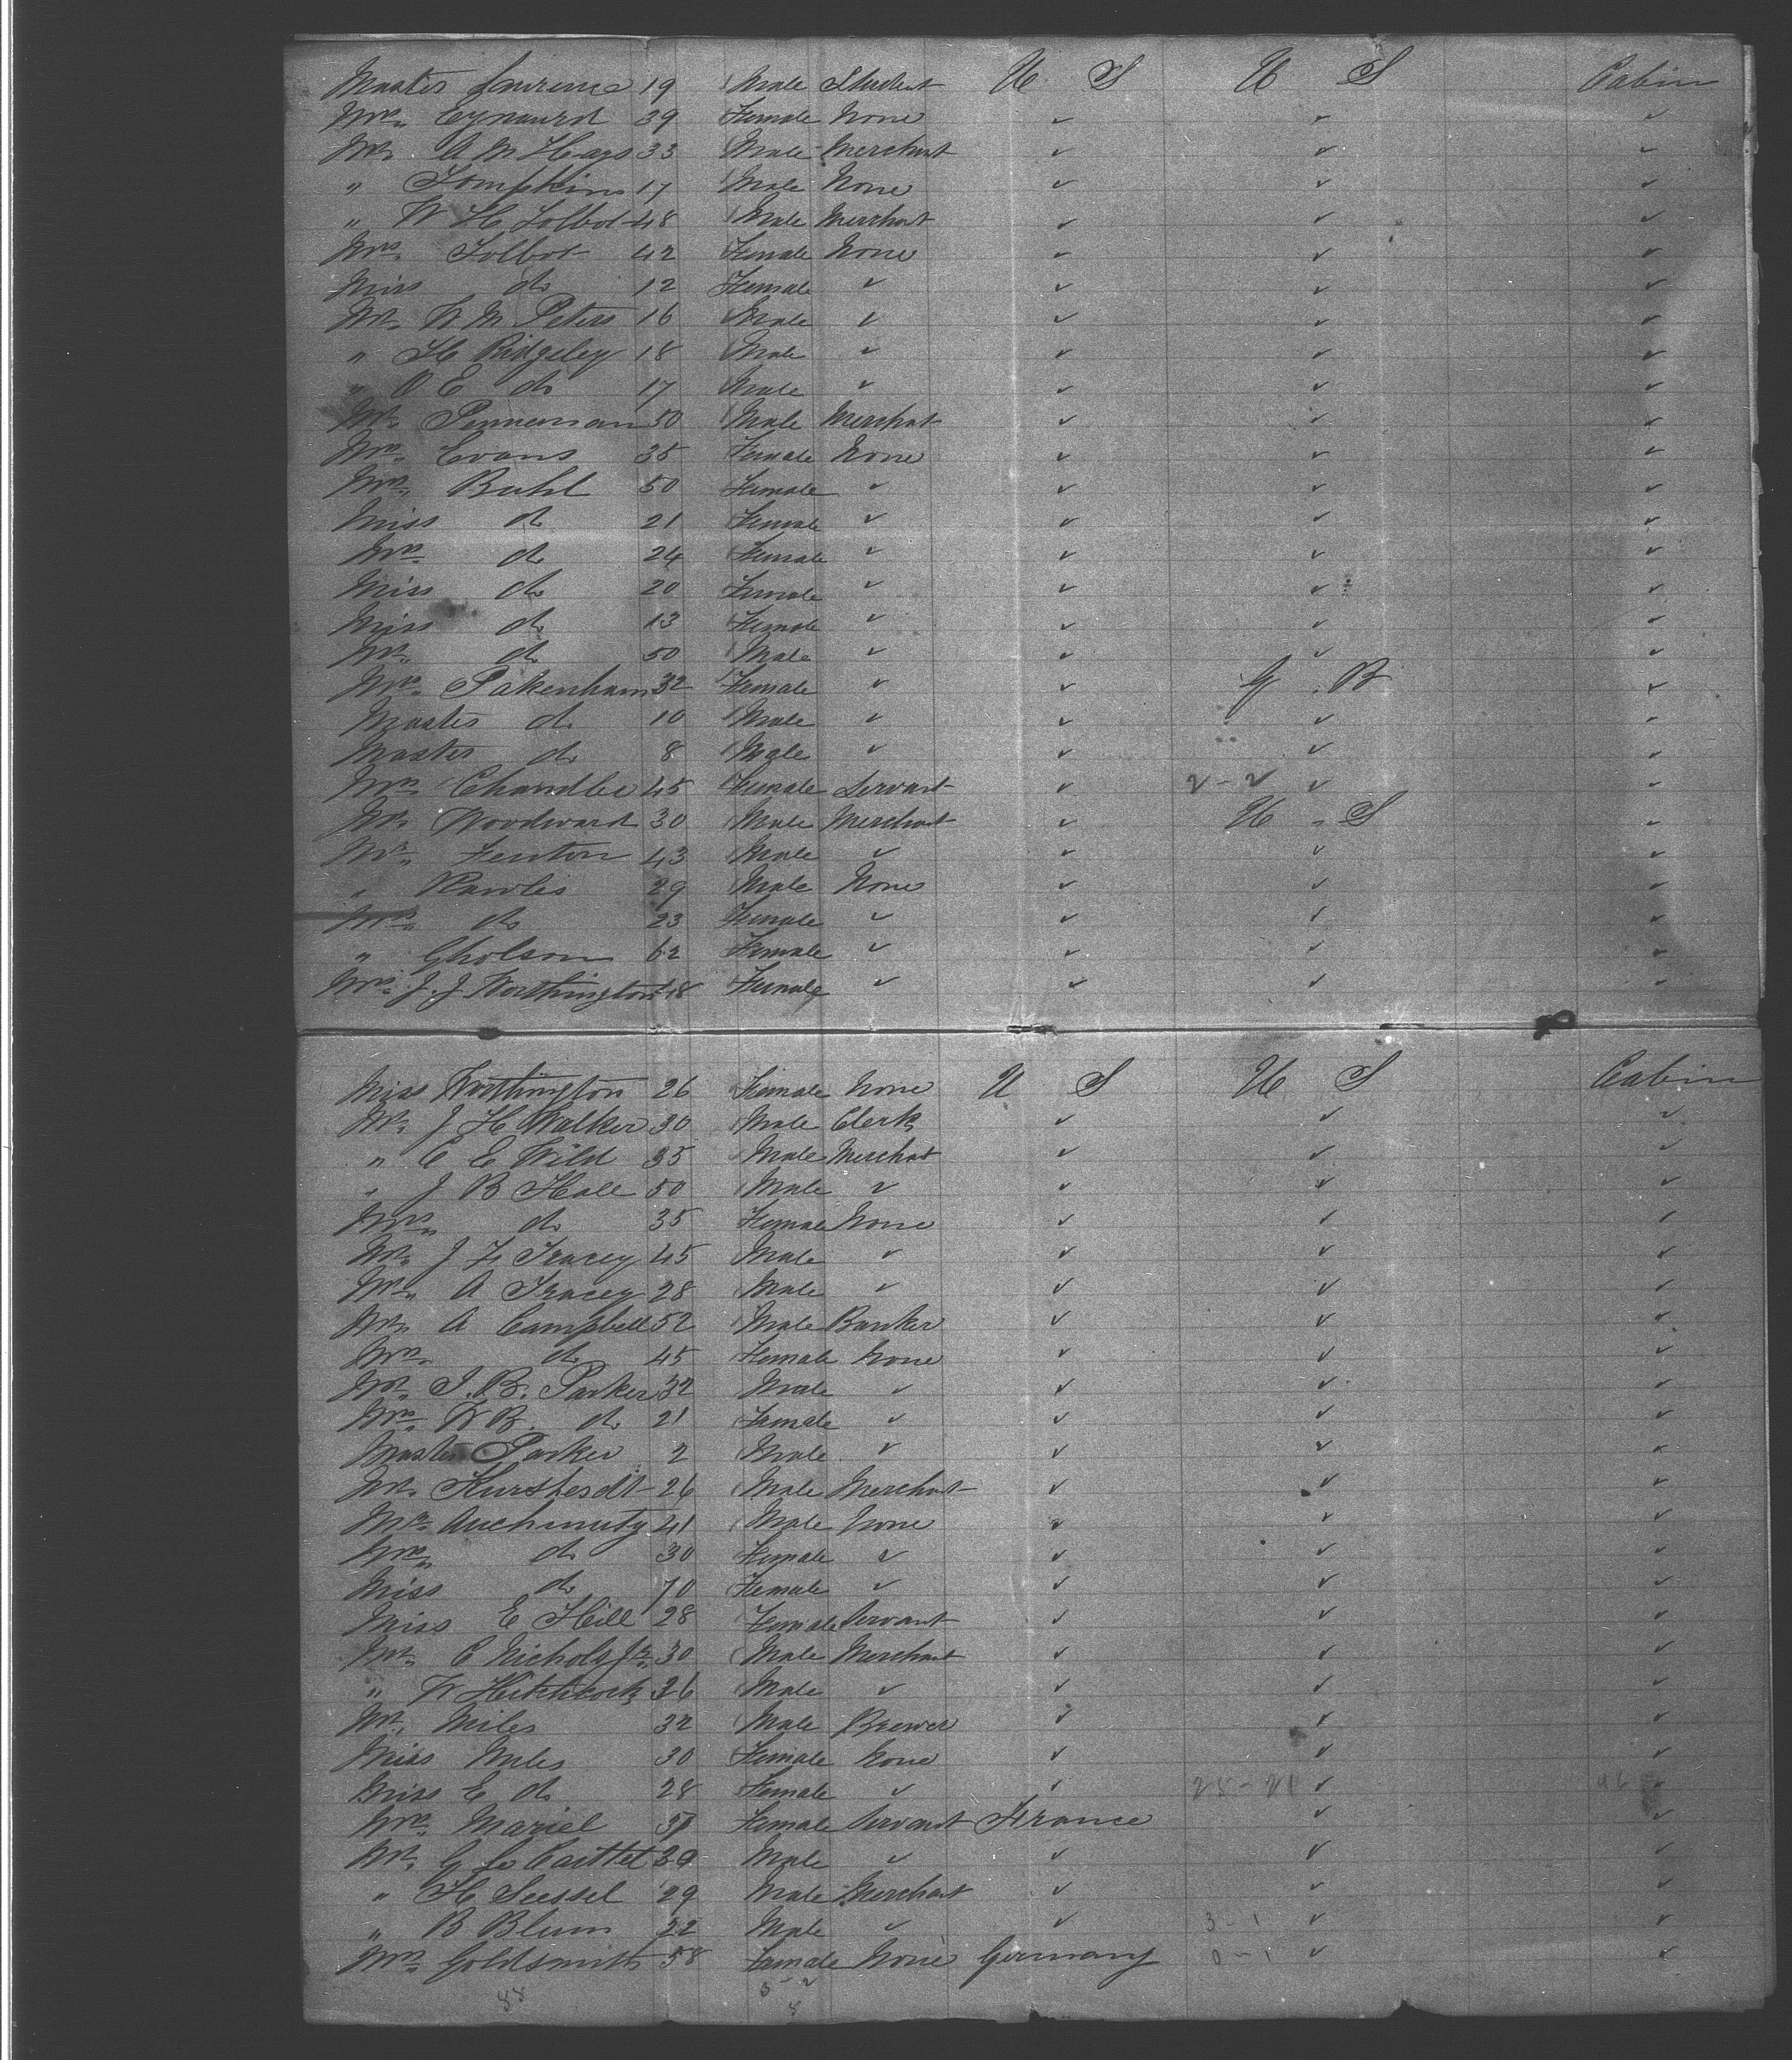 Master Laurence 19 Male Student U S U S Cabin
Mrs. Eynaurd 39 Female None ✓ ✓ ✓
Mr. A M Hays 33 Male Merchant ✓ ✓ ✓
" Tompkins 17 Male None ✓ ✓ ✓
" W H Tolbot 48 Male Merchant ✓ ✓ ✓
Mrs. Tolbot 42 Female None ✓ ✓ ✓
Miss do 12 Female ✓ ✓ ✓ ✓
Mr. W M Peters 16 Male ✓ ✓ ✓ ✓
" H Ridgeley 18 Male ✓ ✓ ✓ ✓
" O E do 17 Male ✓ ✓ ✓ ✓
Mr. Penneman 50 Male Merchat ✓ ✓ ✓
Mrs. Evans 35 Female None ✓ ✓ ✓
Mrs. Buhl 50 Female ✓ ✓ ✓ ✓
Miss do 21 Female ✓ ✓ ✓ ✓
Mrs do 24 Female ✓ ✓ ✓ ✓
Miss do 20 Female ✓ ✓ ✓ ✓
Miss do 13 Female ✓ ✓ ✓ ✓
Mr. do 50 Male ✓ ✓ ✓ ✓
Mrs. Pakenham 32 Female ✓ ✓ G B ✓
Master do 10 Male ✓ ✓ ✓ ✓
Master do 8 Male ✓ ✓ ✓ ✓
Mrs. Chandler 45 Female Servant ✓ 2-2 ✓ ✓
Mr. Woodward 30 Male Merchant ✓ U S ✓
Mr. Fenton 43 Male ✓ ✓ ✓ ✓
" Rawlis 29 Male None ✓ ✓ ✓
Mrs. do 23 Female ✓ ✓ ✓ ✓
" Gholson 62 Female ✓ ✓ ✓ ✓
Mrs. J. J Worthington 48 Female ✓ ✓ ✓ ✓
Miss Worthington 26 Female None U S U S Cabin
Mr. J H Walker 30 Male Clerk ✓ ✓ ✓
" C E Wild 35 Male Merchat ✓ ✓ ✓
" J B Hall 50 Male ✓ ✓ ✓ ✓
Mrs. do 35 Female None ✓ ✓ ✓
Mr. J F Tracey 45 Male ✓ ✓ ✓ ✓
Mr. A Tracey 28 Male ✓ ✓ ✓ ✓
Mr. A Campbell 52 Male Banker ✓ ✓ ✓
Mrs. do 45 Female None ✓ ✓ ✓
Mr. J. B. Parker 32 Male ✓ ✓ ✓ ✓
Mrs. W B. do 21 Female ✓ ✓ ✓ ✓
Master Parker 2 Male ✓ ✓ ✓ ✓
Mr. Hurstesdt 26 Male Merchant ✓ ✓ ✓
Mr. Auchmuty 41 Male None ✓ ✓ ✓
Mrs. do 30 Female ✓ ✓ ✓ ✓
Miss do 70 Female ✓ ✓ ✓ ✓
Miss E Hill 28 Female Servant ✓ ✓ ✓
Mr. C Nichols Jr. 30 Male Merchant ✓ ✓ ✓
" W Hitchcock 26 Male ✓ ✓ ✓ ✓
Mr. Miles 32 Male Brewer ✓ ✓ ✓
Miss Miles 30 Female None ✓ ✓ ✓
Miss E do 28 Female ✓ ✓ 25-21 ✓ 46 ✓
Mrs. Mariel 37 Female Servant France ✓ ✓
Mr. G Le Caittet 39 Male ✓ ✓ ✓ ✓
" H Seessel 29 Male Merchant ✓ ✓ ✓
" B Blum 22 Male ✓ ✓ 3-1 ✓ ✓
Mrs. Goldsmith 58 Female None Germany 0-1 ✓ ✓